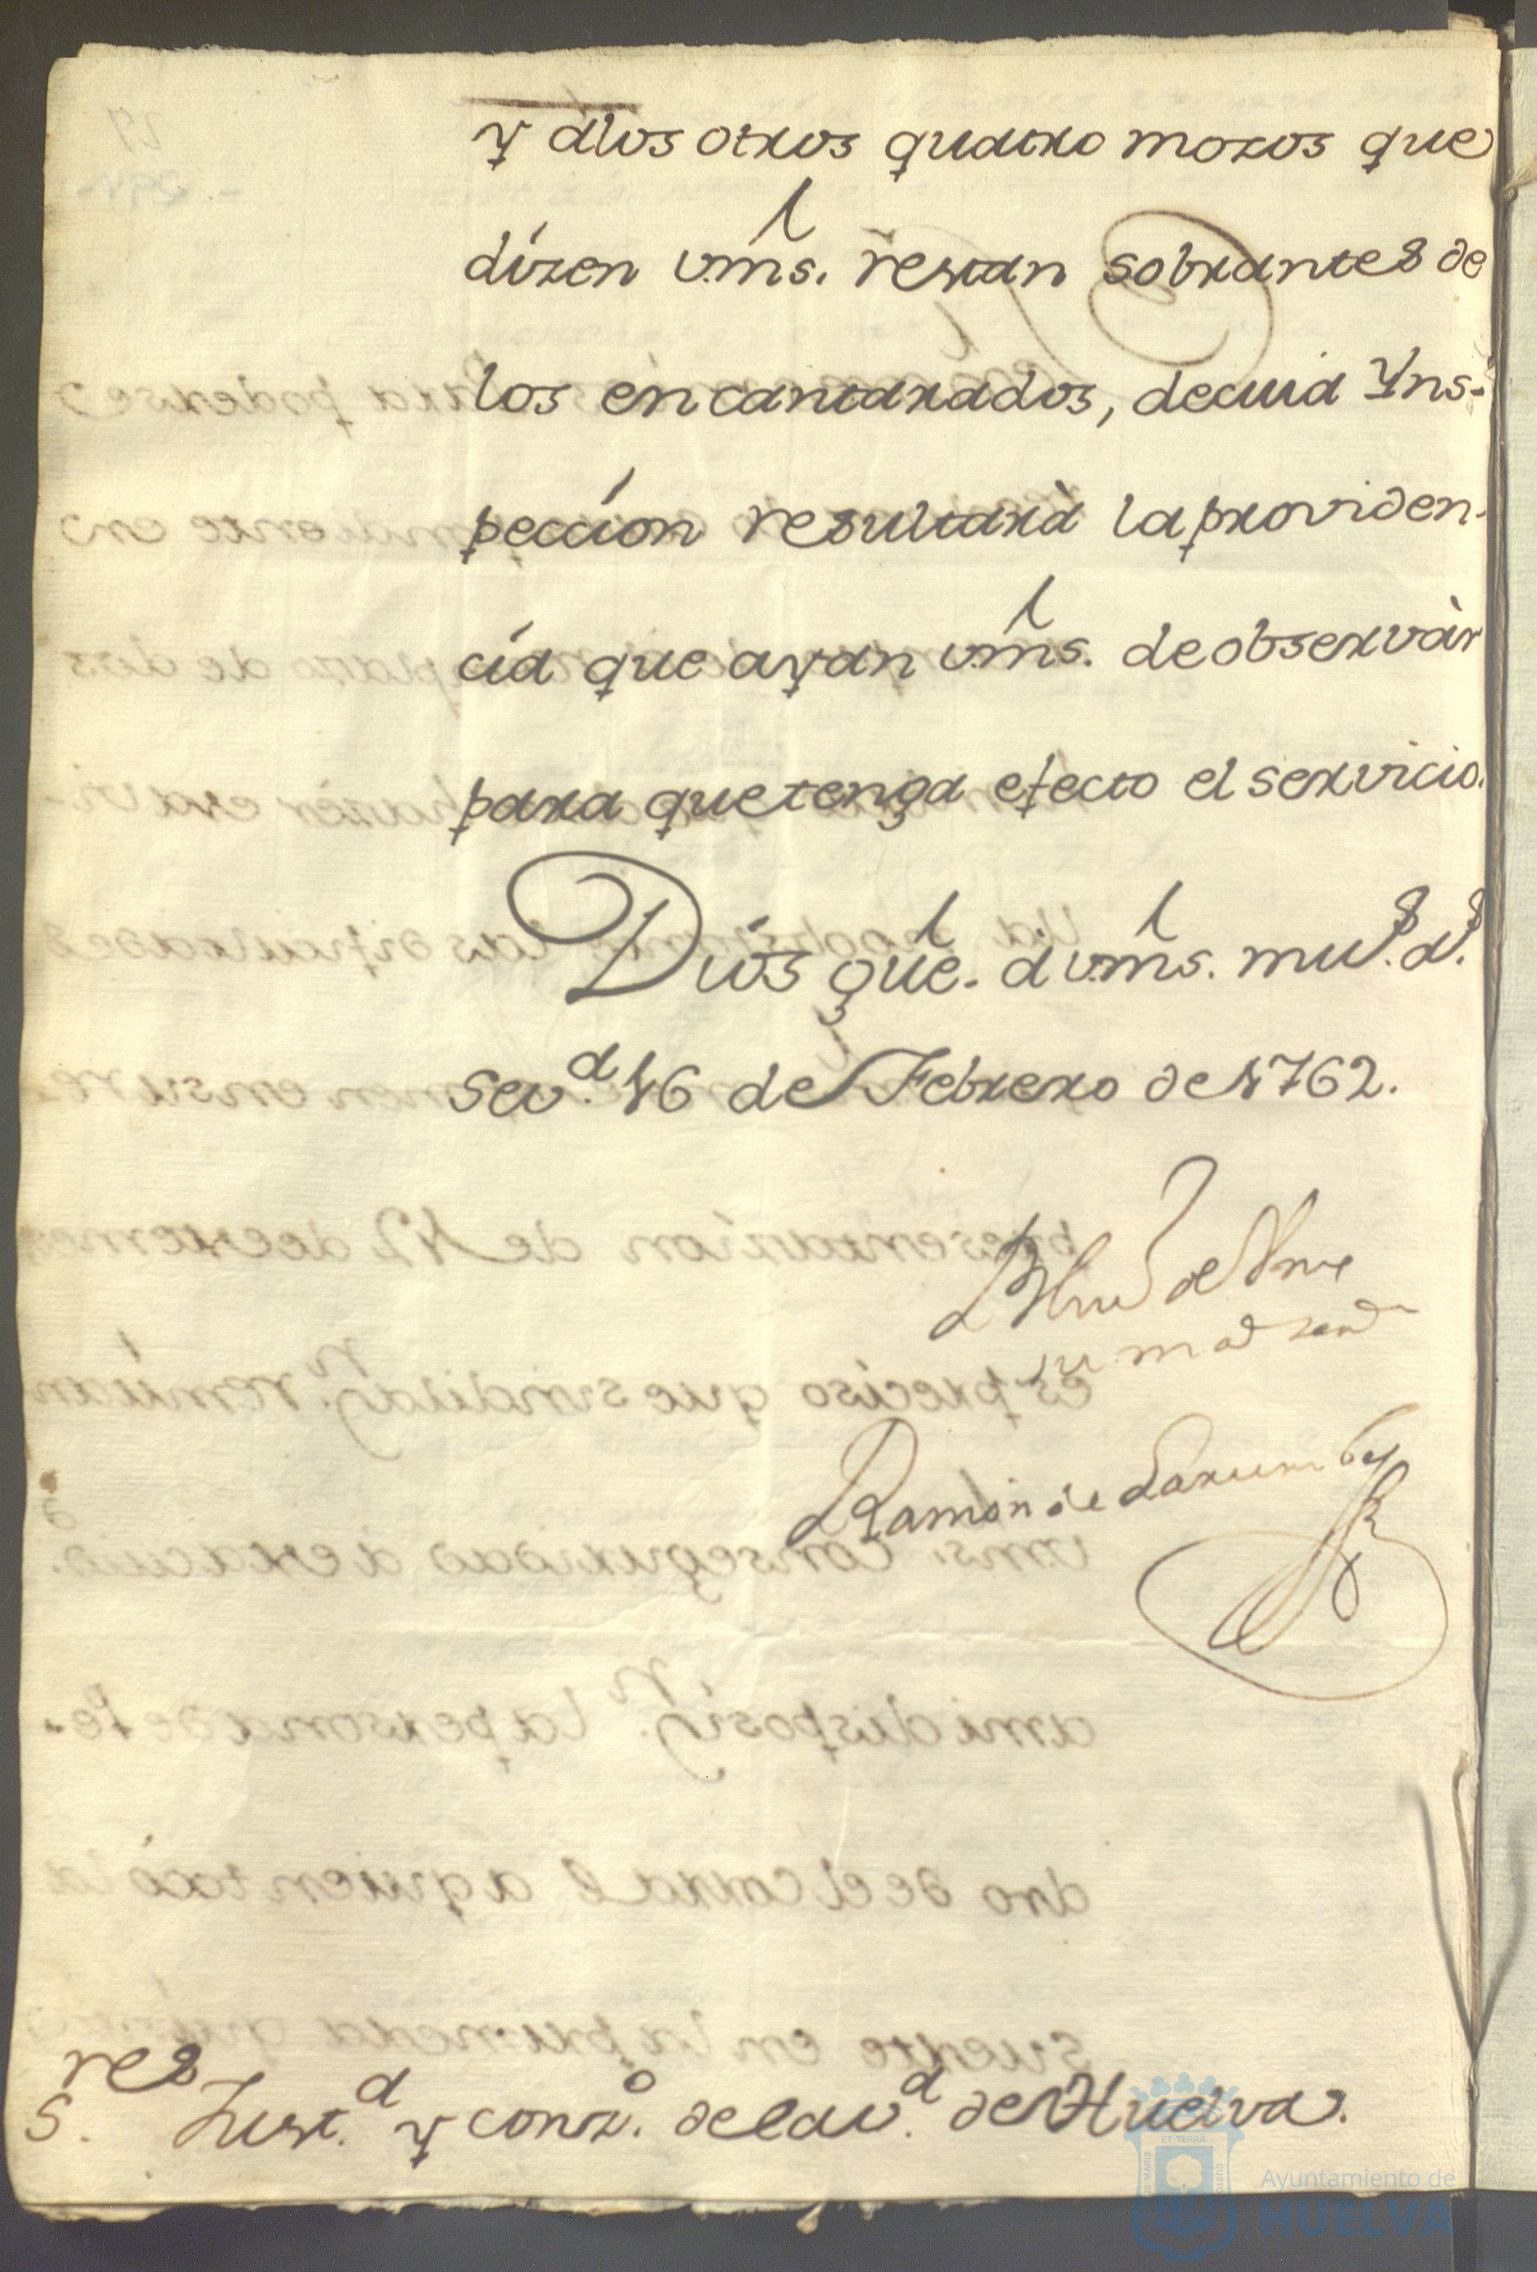 y a los otros quatro mozos que
dizen vms. restan sobrantes de
los encantarados, de cuia Yns-
peccion resultarà la providen-
cia que ayan vms. de observàr
para que tenga efecto el servicio.
Dios gue. a vms. mus. as.
Sevd. 16 de Febrero de 1762.
Ramon de Larumbe
Sres. Justa. y conzo. de la va. de Huelva.
ET TERRAE
Ayuntamiento de
HUELVA